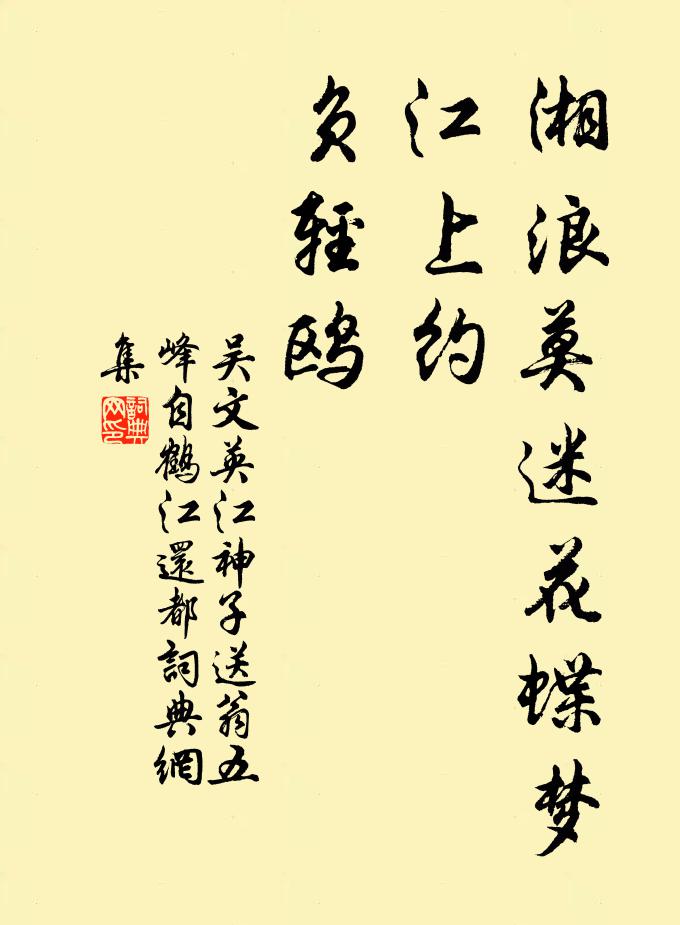 湘浪莫迷花蝶梦
江上约
负轻鸥
吴文英江神子送翁五
峰自鹤江還都詞典網
集
詞典
网印